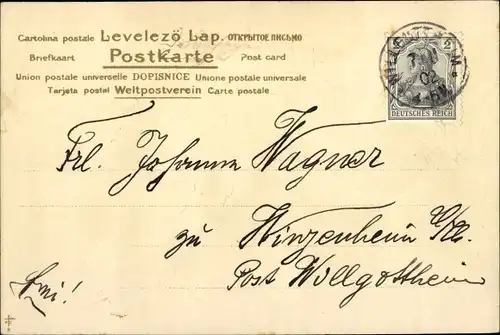 Cartolina postale Levelezö Lap. ОТКРЫТОЕ ПИСЬМО
Briefkaart Postkarte Post card
Union postale universelle DOPISNICE Unione postale universale
Tarjeta postal Weltpostverein Carte postale
2
DEUTSCHES REICH
02
Frl. Johanna Wagner
zu Winzenheim
Post Willgottheim